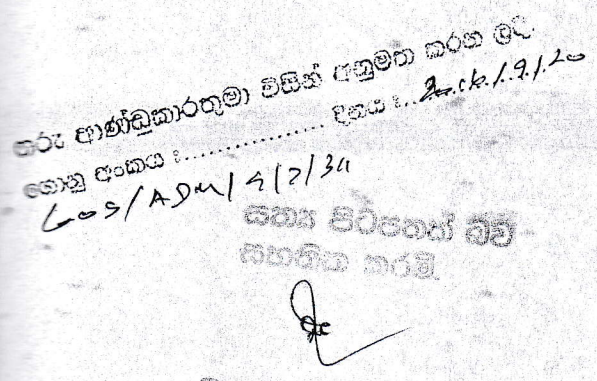 ගරු ආණ්ඩුකාරතුමා විසින් අනුමත කරන ලදි
ගොනු අංකය :................ දිනය :..
GOS/ADM/4/7/34
සත්‍ය පිටපතක් බව
සහතික කරමි.